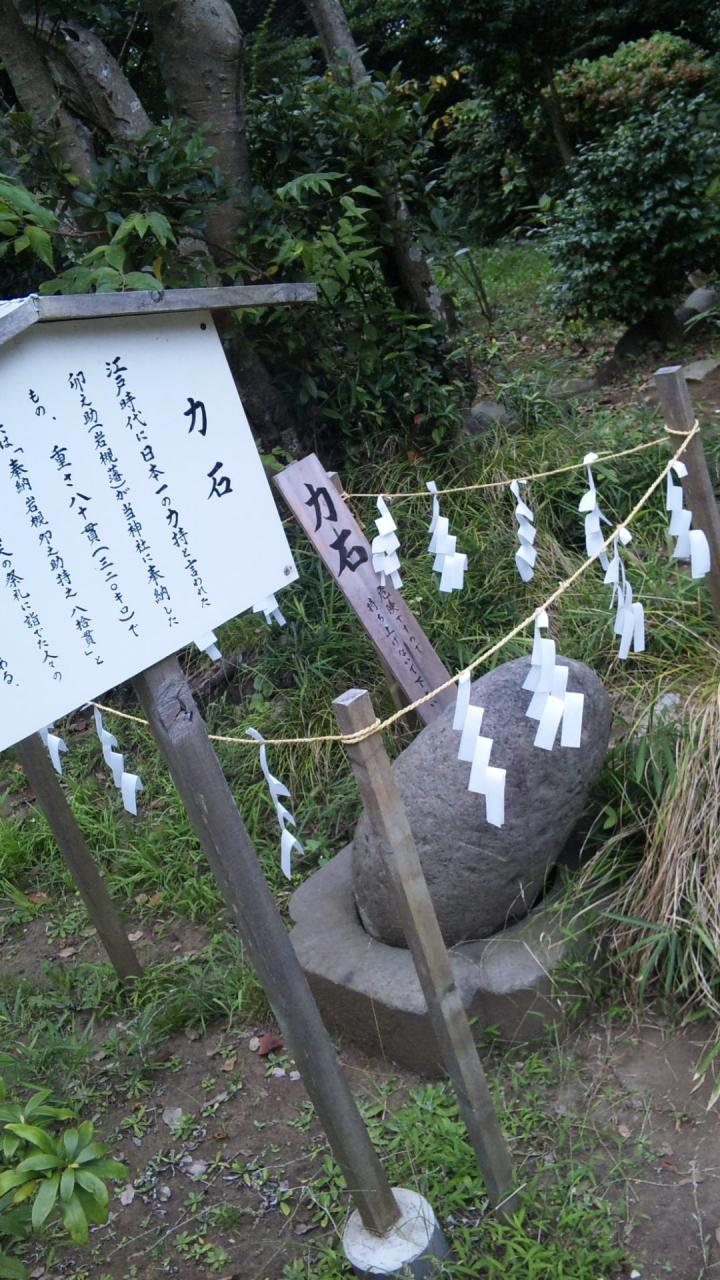 力石
江戸時代に日本一の力持と言われた
卯之助(岩槻藩)が当神社に奉納した
もの。重さ八十貫(三二〇キロ)で
は「奉納岩槻卯之助持之 八拾貫」と
の祭礼に詣でた人々の
ある。
力石
危険ですので
持ち上げないで下